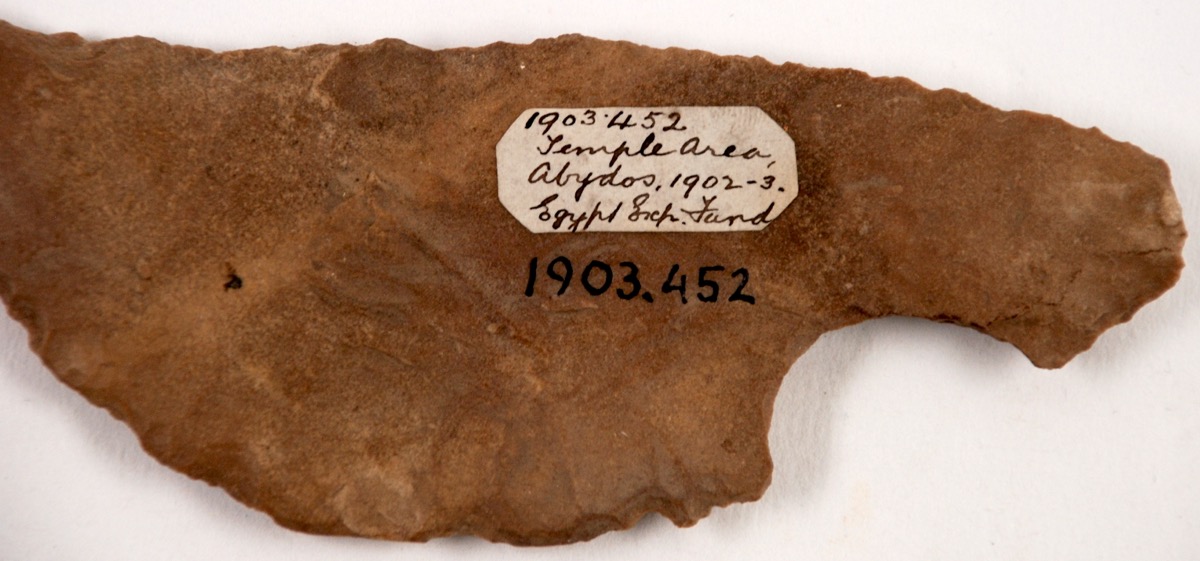 1903.452
Temple Area,
Abydos. 1902-3.
Egypt Exp. Fund
1903.452